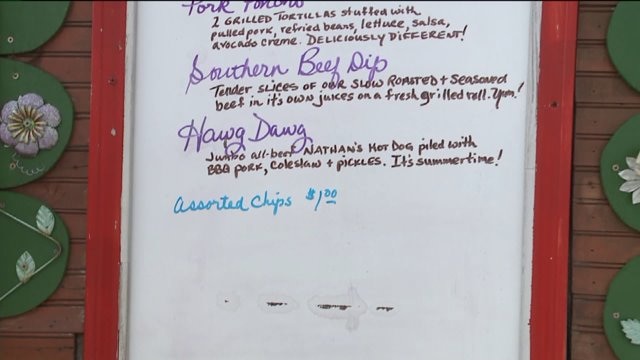 Pork
2 GRILLED TORTILLAS stuffed with
pulled pork, refried beans, lettuce, salsa,
avocado creme. DELICIOUSLY DIFFERENT!
Southern Beef Dip
Tender slices of our slow roasted + seasoned
beef in it's own juices on a fresh grilled roll. Yum!
Hawg Dawg
Jumbo all-beef NATHAN'S HOT DOG piled with
BBQ PORK, Coleslaw + pickles. It's summertime!
Assorted Chips $1.00